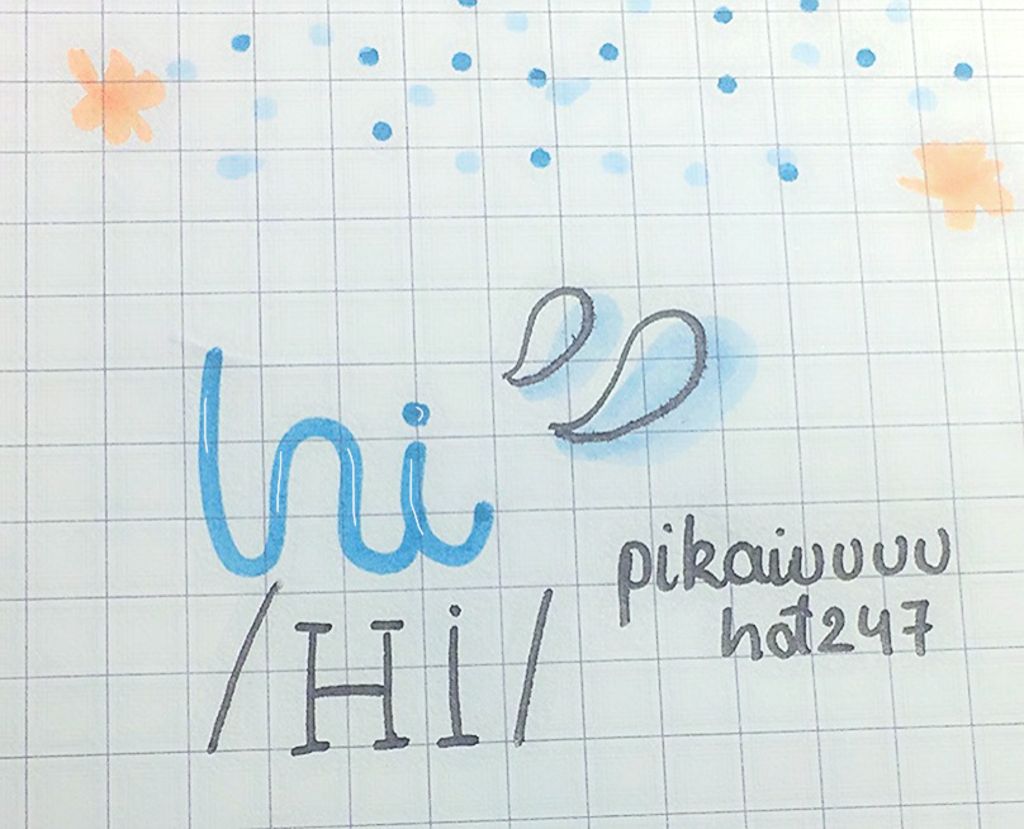 hi
/Hi/
pikaiuuuu
hot247